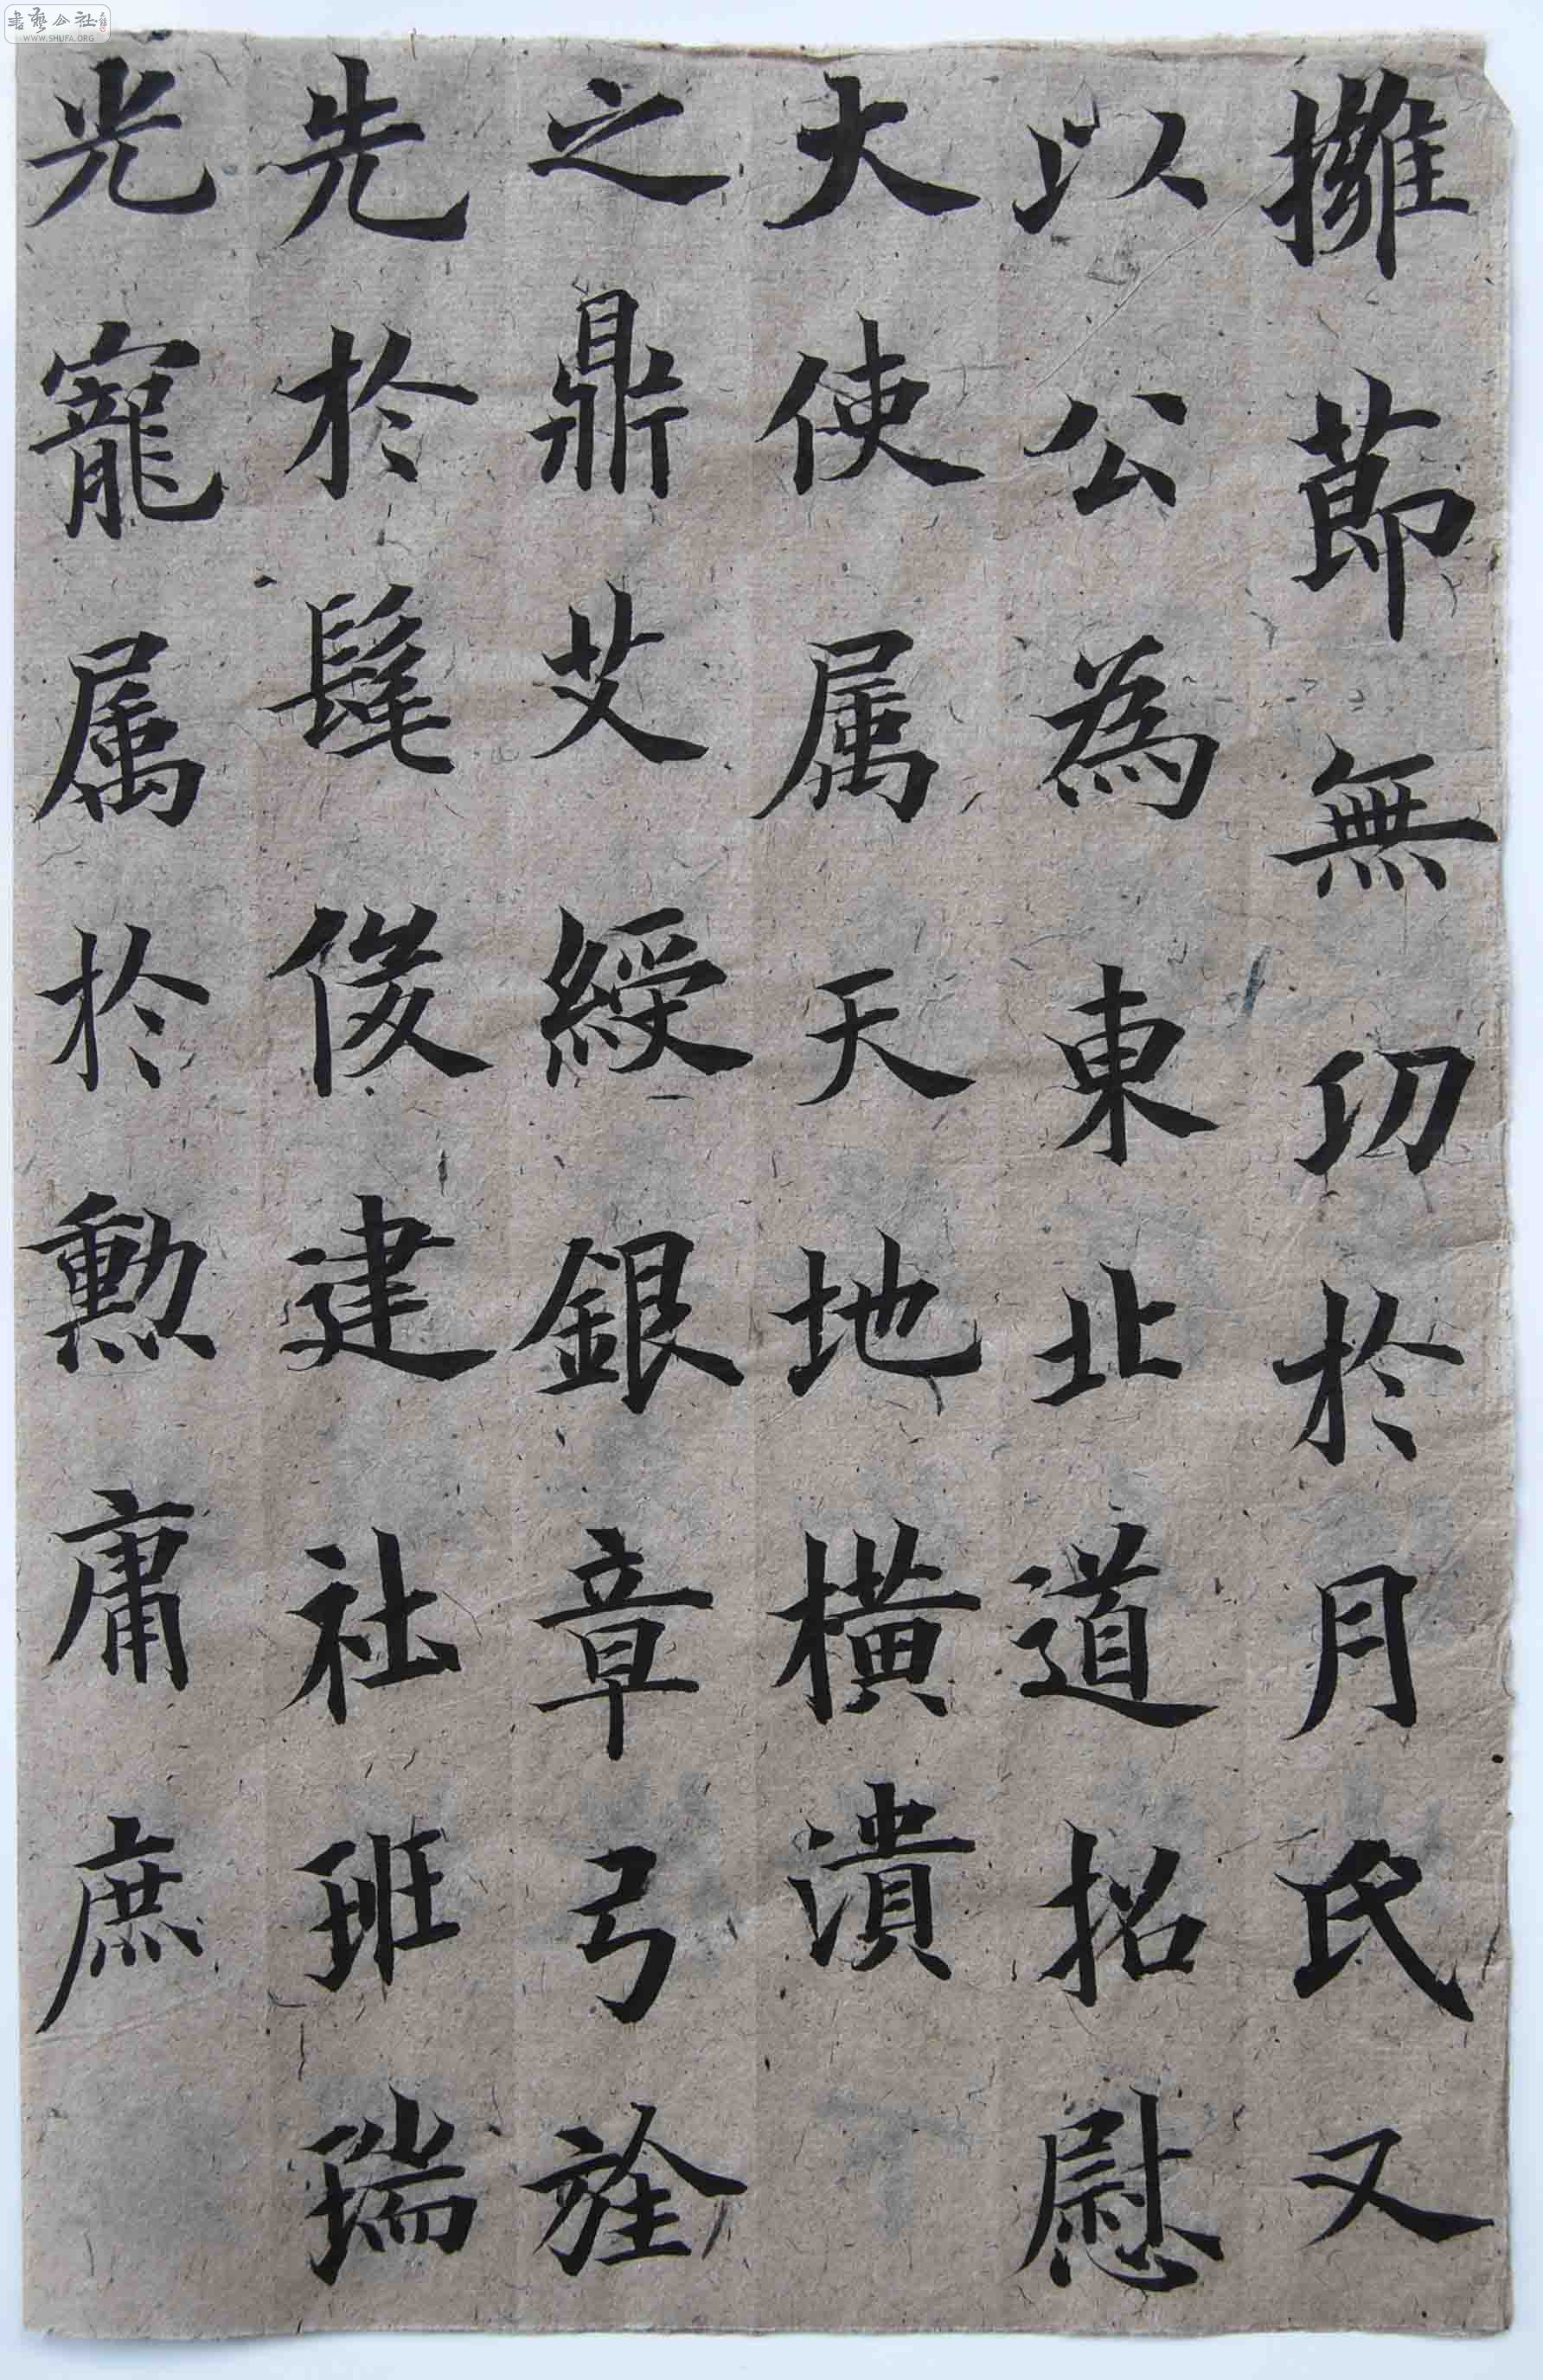 擁節無功於月氏又
以公為東北道招慰
大使属天地橫潰
之鼎艾綬銀章弓旌
先於髦俊建社班瑞
光寵属於勲庸庶
書藝公社
WWW.SHUFA.ORG